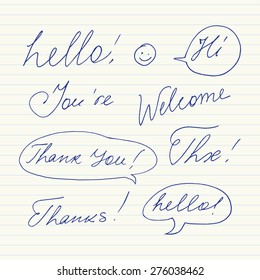 hello! Hi
You're Welcome
Thank You! Thx!
Thanks! hello!
shutterstock.com · 276038462